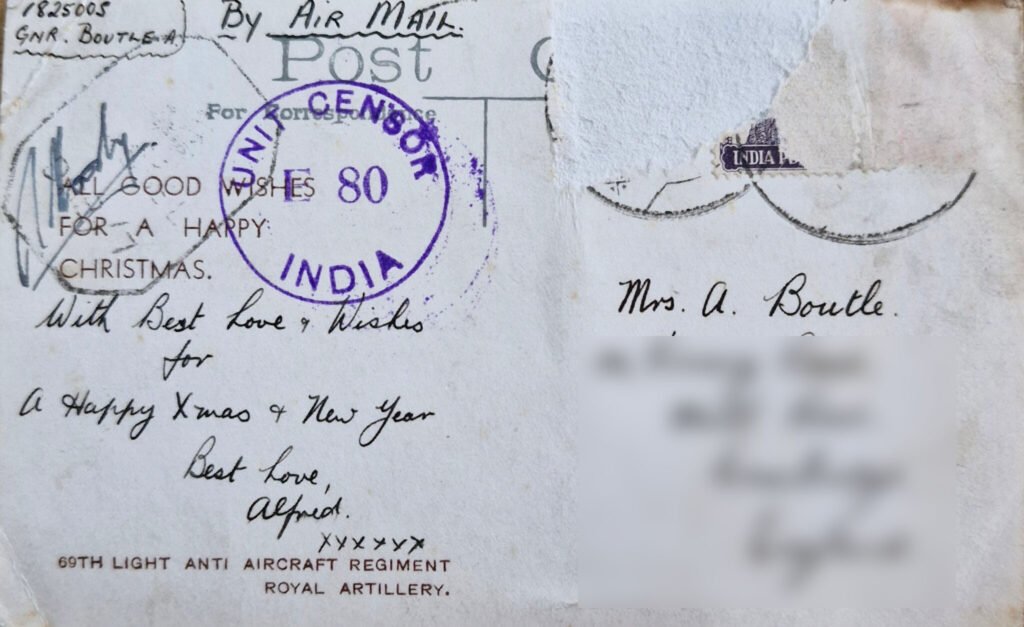 1825005
GNR. BOUTLE A.
By AIR MAIL.
Post C
For Correspondence
UNIT CENSOR
E 80
INDIA
INDIA P
ALL GOOD WISHES
FOR A HAPPY
CHRISTMAS.
With Best Love & Wishes
for
A Happy Xmas & New Year
Best Love,
Alfred.
xxxxxx
69TH LIGHT ANTI AIRCRAFT REGIMENT
ROYAL ARTILLERY.
Mrs. A. Boutle.